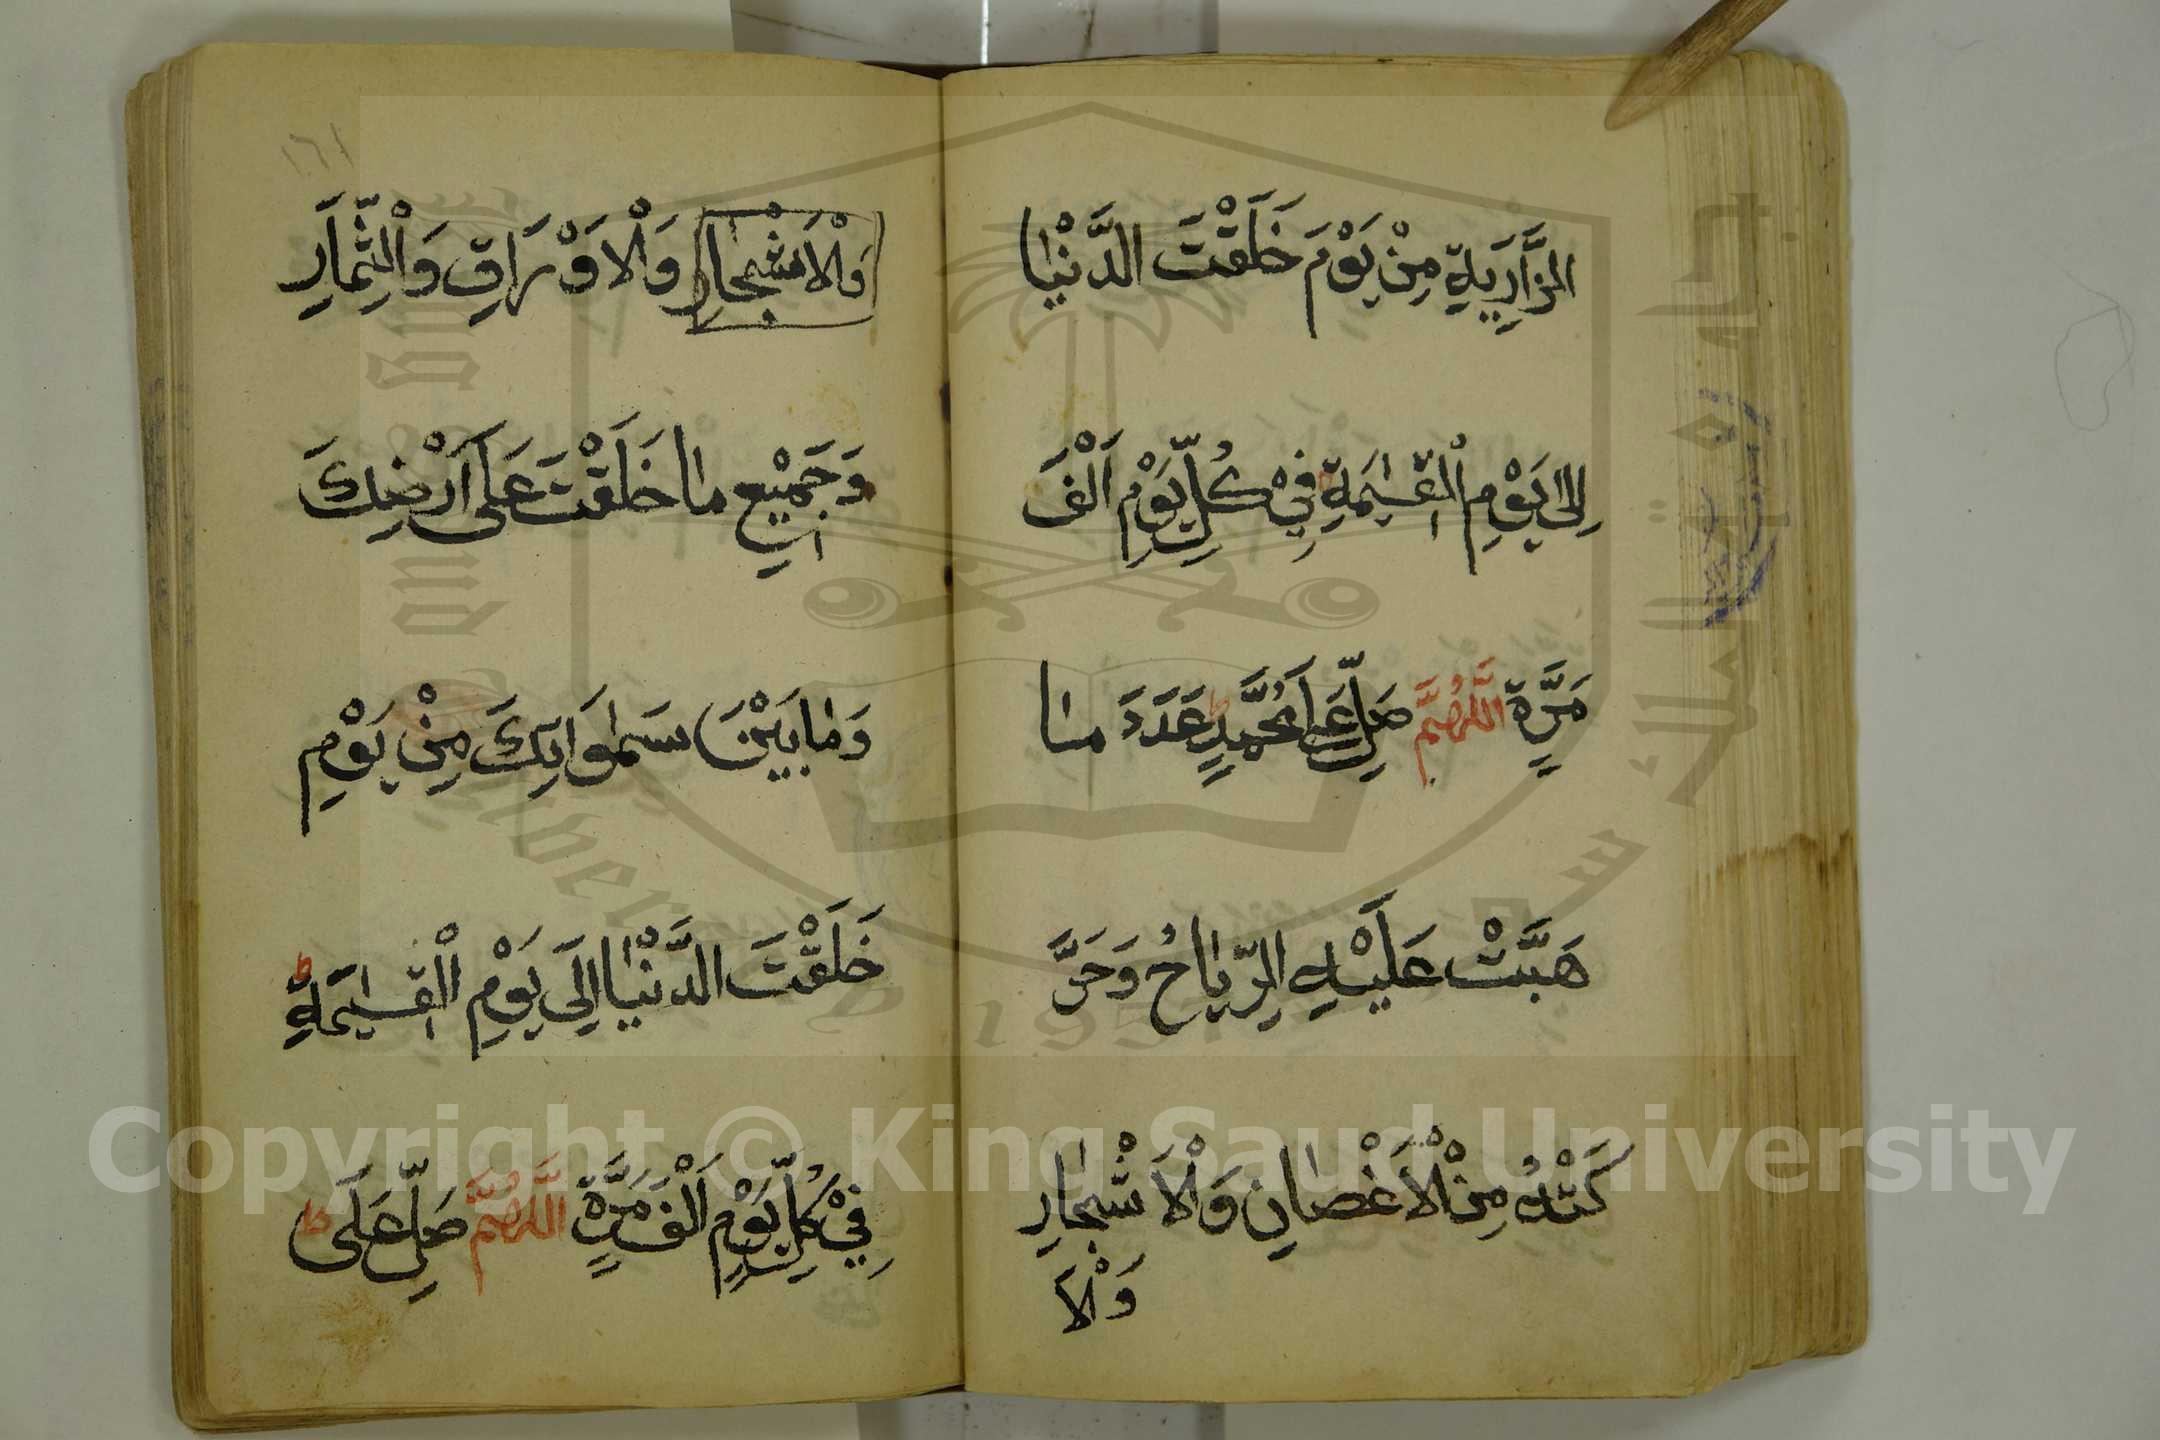 الزَّارِيَةِ مِنْ يَوْمَ خَلَقْتَ الدُّنْيَا
اِلىٰ يَوْمِ الْقِيٰمَةِ فِيْ كُلِّ يَوْمٍ اَلْفَ
مَرَّةٍ اَللّٰهُمَّ صَلِّ عَلىٰ مُحَمَّدٍ عَدَدَ مَا
هَبَّتْ عَلَيْهِ الرِّيَاحُ وَحَرَّ
كَتْهُ مِنْ الْاَغْصَانِ وَالْاَشْجَارِ
وَالْاَ
١٦١
وَالْاَشْجَارِ وَالْاَوْرَاقِ وَالْثِّمَارِ
وَجَمِيْعِ مَا خَلَقْتَ عَلىٰ اَرْضِكَ
وَمَا بَيْنَ سَمٰوَاتِكَ مِنْ يَوْمِ
خَلَقْتَ الدُّنْيَا اِلَى يَوْمِ الْقِيٰمَةِ
فِيْ كُلِّ يَوْمٍ اَلْفَ مَرَّةٍ اَللّٰهُمَّ صَلِّ عَلَى
Copyright © King Saud University
1957